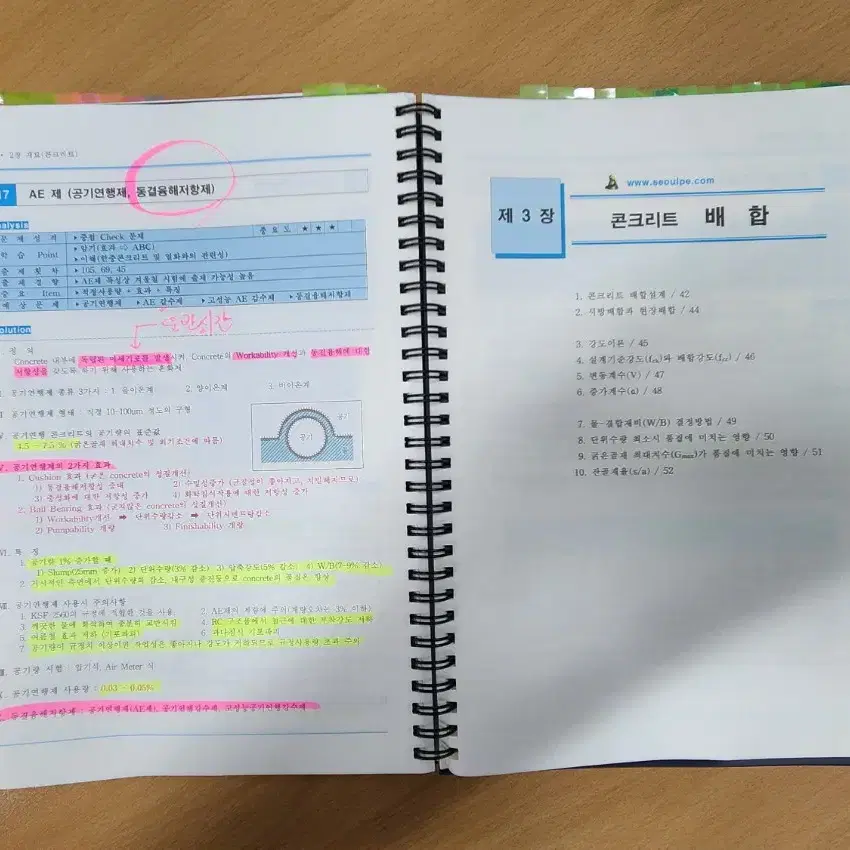 • 2장 재료(콘크리트)
17 AE 제 (공기연행제, 동결융해저항제)
nalysis
문 제 성 격 ▸중점 Check 문제
중 요 도 ★ ★ ★
학 습 Point ▸암기(효과 ⇨ ABC)
▸이해(한중콘크리트 및 열화와의 관련성)
출 제 횟 차 ▸105, 69, 45
출 제 경 향 ▸AE제 특성상 겨울철 시험에 출제 가능성 높음
중 요 Item ▸적정사용량 + 효과 + 특징
예 상 문 제 ▸공기연행제 ▸AE 감수제 ▸고성능 AE 감수제 ▸동결융해저항제
olution
정 의
Concrete 내부에 독립된 미세기포를 발생시켜, Concrete의 Workability 개선과 동결융해에 대한
저항성을 갖도록 하기 위해 사용하는 혼화제
공기연행제 종류 3가지 : 1. 음이온계 2. 양이온계 3. 비이온계
공기연행제 형태 : 직경 10-100㎛ 정도의 구형
공기
공기
공기연행 콘크리트와 공기량의 표준값
4.5 ~ 7.5 % (굵은골재 최대치수 및 환기조건에 따름)
공기연행제의 2가지 효과
1. Cushion 효과 (굳은 concrete의 성질개선)
1) 동결융해저항성 증대 2) 수밀성증가 (균질성이 좋아지고, 치밀해지므로)
3) 중성화에 대한 저항성 증가 4) 화학침식작용에 대한 저항성 증가
2. Ball Bearing 효과 (굳지않은 concrete의 성질개선)
1) Workability개선 ➡ 단위수량감소 ➡ 단위시멘트량감소
2) Pumpability 개량 3) Finishability 개량
특 징
1. 공기량 1% 증가할 때
1) Slump(25mm 증가) 2) 단위수량(3% 감소) 3) 압축강도(5% 감소) 4) W/B(7~9% 감소)
2. 기사적인 측면에서 단위수량의 감소, 내구성 증진등으로 concrete의 품질은 향상
공기연행제 사용시 주의사항
1. KSF 2560의 규정에 적합한 것을 사용 2. AE제의 계량에 주의(계량오차는 3% 이하)
3. 깨끗한 물에 희석하여 충분히 교반시킴 4. RC 구조물에서 철근에 대한 부착강도 저하
5. 여름철 효과 저하 (기포파괴) 6. 과다진시 기포파괴
7. 공기량이 규정치 이상이면 작업성은 좋아지나 강도가 저하되므로 규정사용량 초과 주의
공기량 시험 : 압기식, Air Meter 식
공기연행제 사용량 : 0.03 ~ 0.05%
동결융해저항제 : 공기연행제(AE제), 공기연행감수제, 고성능공기연행감수제
www.seoulpe.com
제 3 장 콘크리트 배 합
1. 콘크리트 배합설계 / 42
2. 시방배합과 현장배합 / 44
3. 강도이론 / 45
4. 설계기준강도(fck)와 배합강도(fcr) / 46
5. 변동계수(V) / 47
6. 증가계수(α) / 48
7. 물-결합재비(W/B) 결정방법 / 49
8. 단위수량 최소시 품질에 미치는 영향 / 50
9. 굵은골재 최대치수(Gmax)가 품질에 미치는 영향 / 51
10. 잔골재율(s/a) / 52